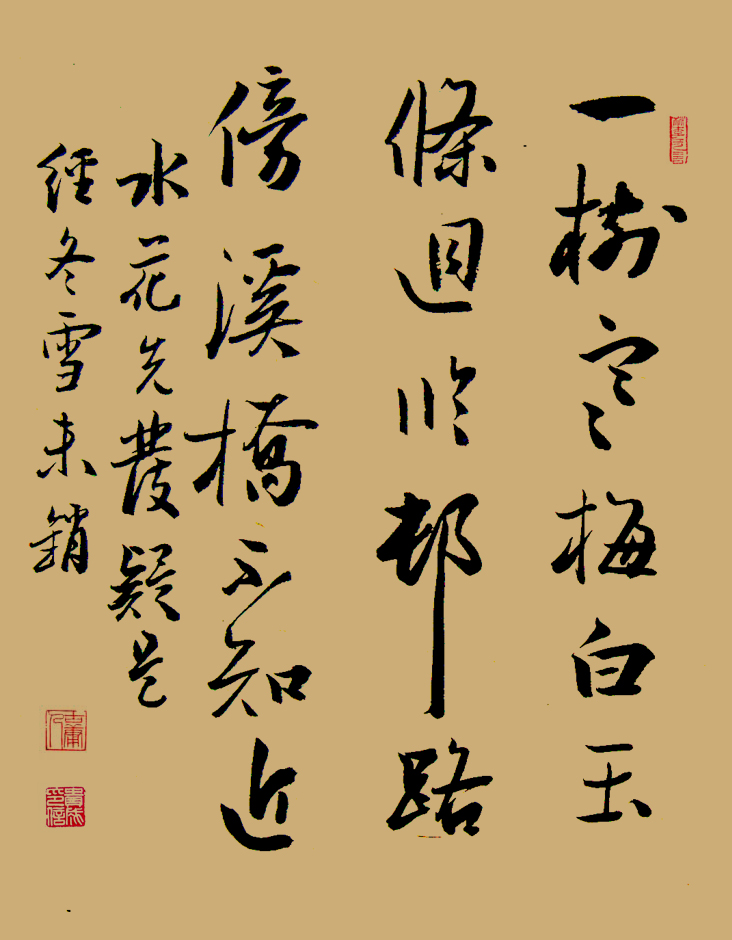 一樹寒梅白玉
條迴臨邨路
傍溪橋不知近
水花先發疑是
經冬雪未銷